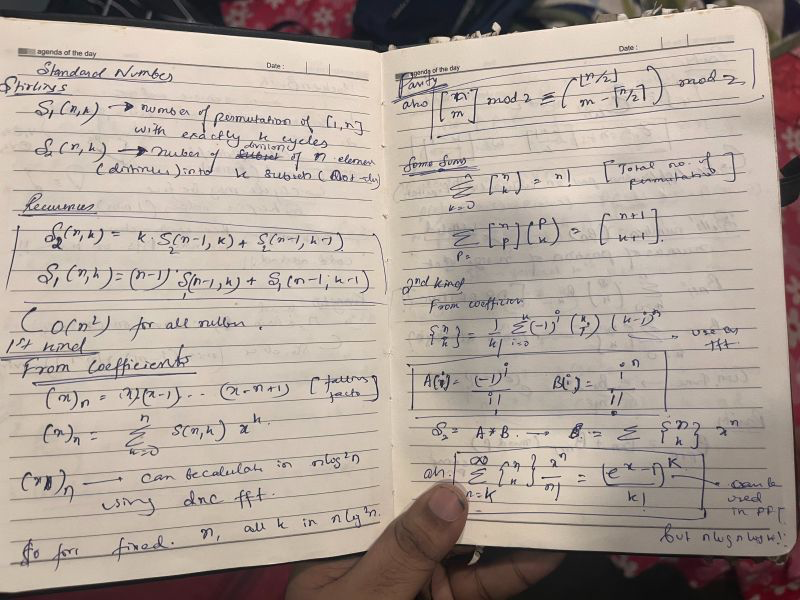 agenda of the day
Date :
Standard Number
Stirlings
S₁(n,k) → number of permutation of [1,n]
with exactly k cycles
S₂(n,k) → number of division of n element
(distinct) into k subset
Recurrences
S₂(n,k) = k·S₂(n-1,k) + S₂(n-1,k-1)
S₁(n,k) = (n-1)·S₁(n-1,k) + S₁(n-1,k-1)
O(n²) for all
1st kind
From Coefficients
(x)ₙ = x(x-1)... (x-n+1) [falling facto]
(x)ₙ = Σₖ₌₀ⁿ S(n,k) xᵏ
→ can be calculate in nlog²n
using dnc fft.
So for fixed n, all k in nlg²n.
agenda of the day
Date :
Parity
also [n m] mod 2 ≡ (⌊n/2⌋ m-⌈n/2⌉) mod 2
Some Sums
Σₖ₌₀ⁿ [n k] = n! [Total no. of permutation]
Σₚ₌ [n p] (p k) = [n+1 k+1].
2nd kind
From coefficien
{n k} = 1/k! Σᵢ₌₀ᵏ (-1)ⁱ (k i) (k-i)ⁿ → use as fft.
A(i) = (-1)ⁱ/i! B(i) = iⁿ/i!
S₂ = A*B. → = Σ {n k} xⁿ
Σₙ₌ₖ^∞ {n k} xⁿ/n! = (eˣ-1)ᵏ/k! → can be used in
but nlogn logk!